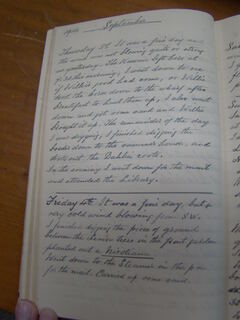 1914 September
Thursday 3rd. It was a fine day and
the wind not blowing quite so strong
as yesterday. The Ranui left here at
7.30 this morning, I went down to see
if Willie's goods had come, so Willie
took the horse down to the wharf after
Breakfast to bring them up, I also went
down and got some and Willie
brought it up. The remainder of the day
I was digging, I finished digging the
border down to the summer house, and
took out the Dahlia roots.
In the evening I went down for the mail
and attended the Library.
Friday 4th. It was a fine day, but a
very cold wind blowing from S.W.
I finished digging the piece of ground
between the trees in the front garden
planted out a
Went down to the Steamer in the p.m
for the mail. Carried up some